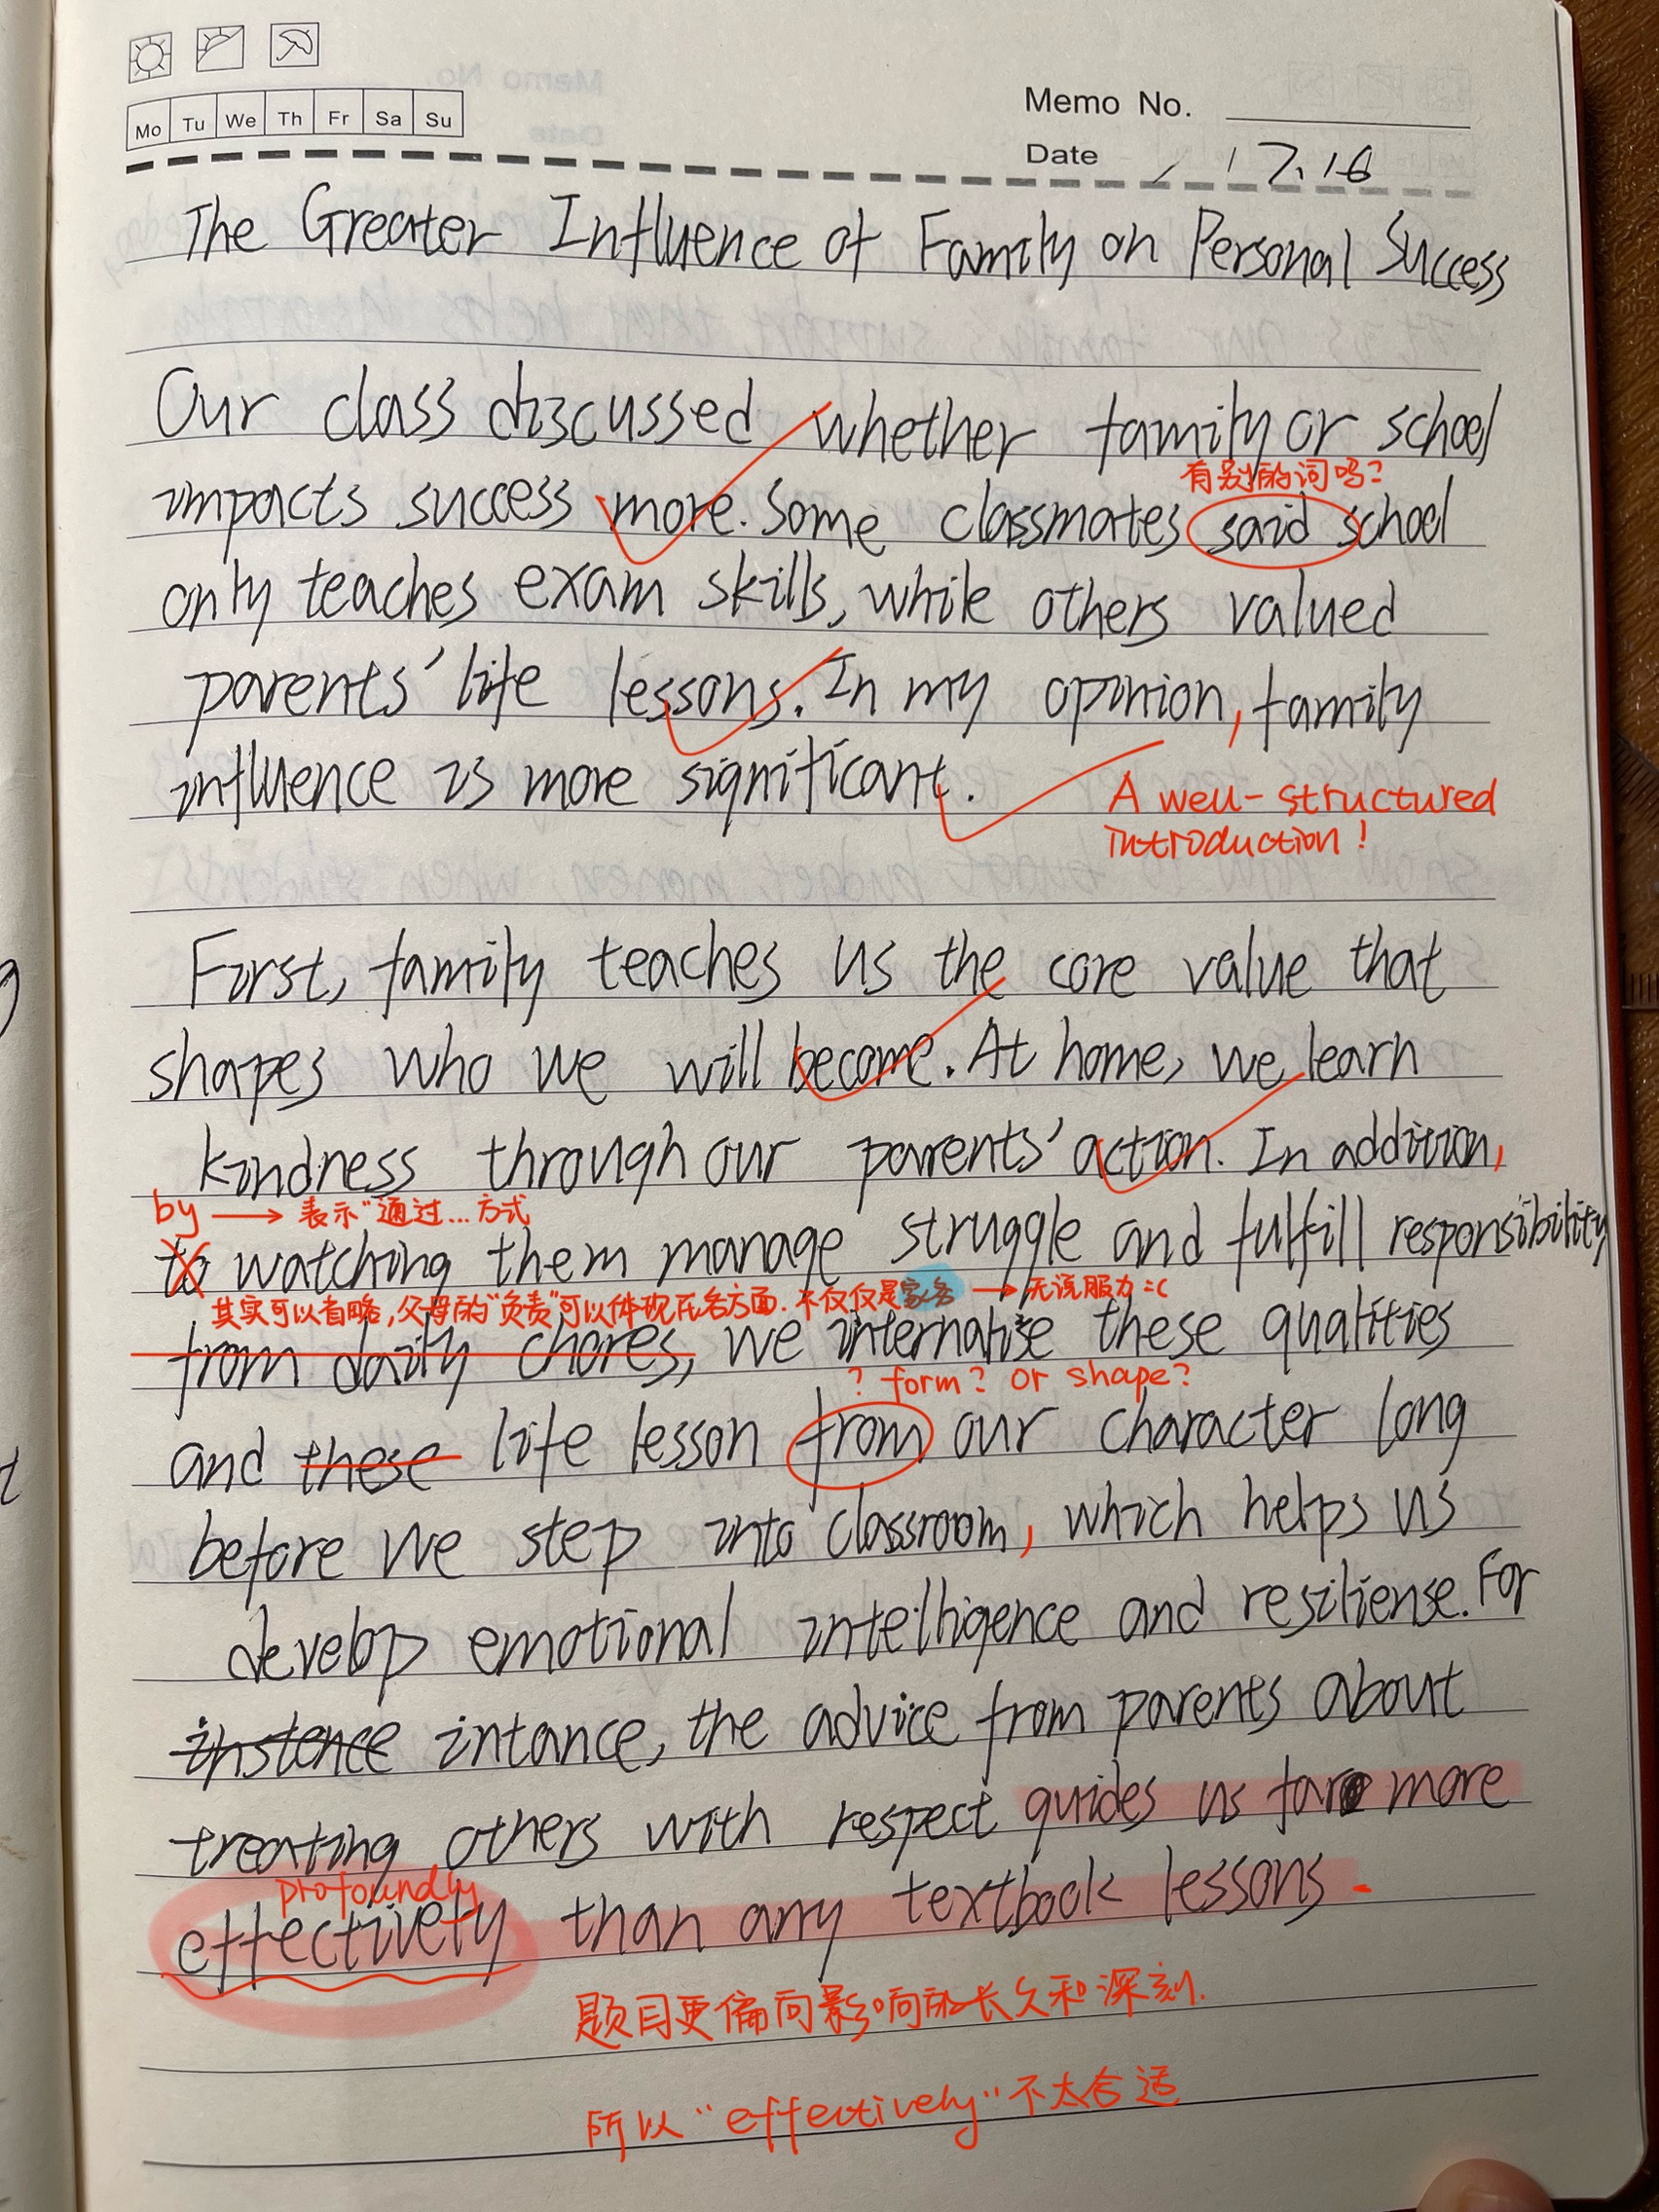 Mo Tu We Th Fr Sa Su
Memo No.
Date 17.16
The Greater Influence of Family on Personal Success
Our class discussed whether family or school
有别的词吗?
impacts success more. Some classmates said school
only teaches exam skills, while others valued
parents' life lessons. In my opinion, family
influence is more significant.
A well-structured
introduction!
First, family teaches us the core value that
shapes who we will become. At home, we learn
kindness through our parents' action. In addition,
by → 表示"通过...方式
to watching them manage struggle and fulfill responsibility
其实可以省略,父母的"负责"可以体现在各方面.不仅仅是家务 → 无说服力 =(
from daily chores, we internalise these qualities
? form? or shape?
and these life lesson from our character long
before we step into classroom, which helps us
develop emotional intelligence and resiliense. For
instence intance, the advice from parents about
treating others with respect guides us far more
profoundly
effectively than any textbook lessons.
题目更偏向影响的长久和深刻.
所以"effectively"不太合适